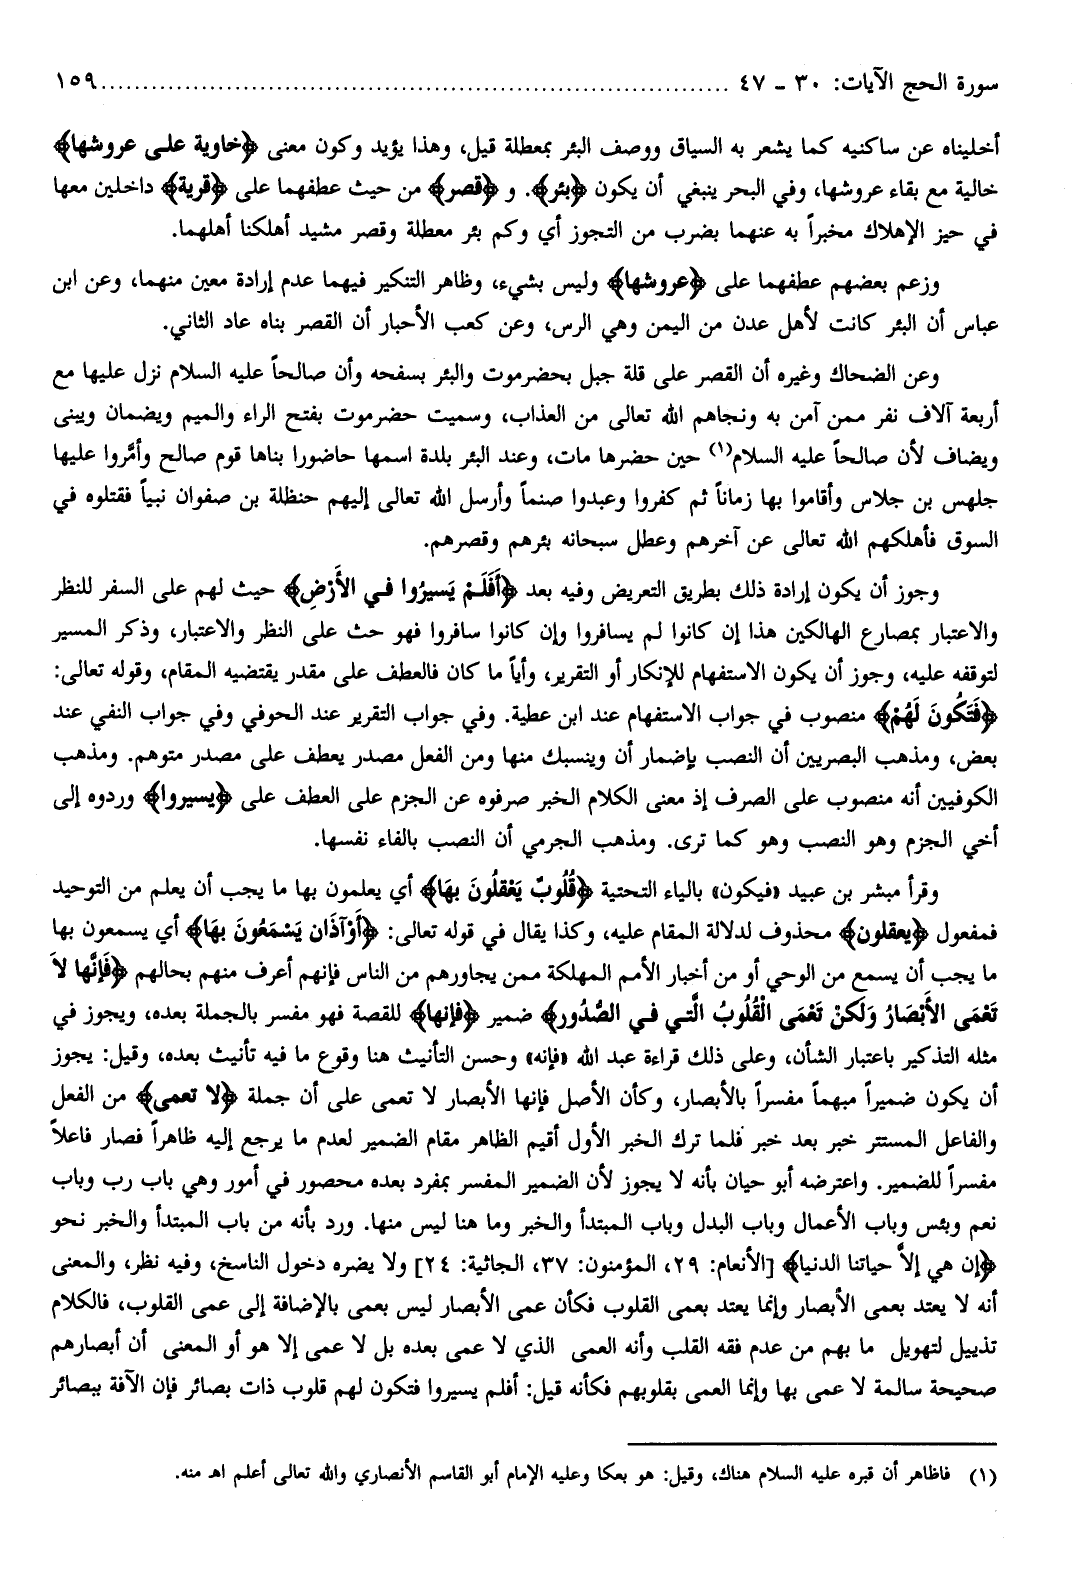 سورة الحج الآيات: ٣٠ - ٤٧ ........................................ ١٥٩
أخليناه عن ساكنيه كما يشعر به السياق ووصف البئر بمعطلة قيل، وهذا يؤيد وكون معنى ﴿خاوية على عروشها﴾
خالية مع بقاء عروشها، وفي البحر ينبغي أن يكون ﴿بئر﴾. و ﴿قصر﴾ من حيث عطفهما على ﴿قرية﴾ داخلين معها
في حيز الإهلاك مخبراً به عنهما بضرب من التجوز أي وكم بئر معطلة وقصر مشيد أهلكنا أهلهما.
وزعم بعضهم عطفهما على ﴿عروشها﴾ وليس بشيء، وظاهر التنكير فيهما عدم إرادة معين منهما، وعن ابن
عباس أن البئر كانت لأهل عدن من اليمن وهي الرس، وعن كعب الأحبار أن القصر بناه عاد الثاني.
وعن الضحاك وغيره أن القصر على قلة جبل بحضرموت والبئر بسفحه وأن صالحاً عليه السلام نزل عليها مع
أربعة آلاف نفر ممن آمن به ونجاهم الله تعالى من العذاب، وسميت حضرموت بفتح الراء والميم ويضمان ويبنى
ويضاف لأن صالحاً عليه السلام(١) حين حضرها مات، وعند البئر بلدة اسمها حاضورا بناها قوم صالح وأمَّروا عليها
جلهس بن جلاس وأقاموا بها زماناً ثم كفروا وعبدوا صنماً وأرسل الله تعالى إليهم حنظلة بن صفوان نبياً فقتلوه في
السوق فأهلكهم الله تعالى عن آخرهم وعطل سبحانه بئرهم وقصرهم.
وجوز أن يكون إرادة ذلك بطريق التعريض وفيه بعد ﴿أَفَلَمْ يَسيرُوا في الأَرْضِ﴾ حيث لهم على السفر للنظر
والاعتبار بمصارع الهالكين هذا إن كانوا لم يسافروا وإن كانوا سافروا فهو حث على النظر والاعتبار، وذكر المسير
لتوقفه عليه، وجوز أن يكون الاستفهام للإنكار أو التقرير، وأياً ما كان فالعطف على مقدر يقتضيه المقام، وقوله تعالى:
﴿فَتَكُونَ لَهُمْ﴾ منصوب في جواب الاستفهام عند ابن عطية. وفي جواب التقرير عند الحوفي وفي جواب النفي عند
بعض، ومذهب البصريين أن النصب بإضمار أن وينسبك منها ومن الفعل مصدر يعطف على مصدر متوهم. ومذهب
الكوفيين أنه منصوب على الصرف إذ معنى الكلام الخبر صرفوه عن الجزم على العطف على ﴿يسيروا﴾ وردوه إلى
أخي الجزم وهو النصب وهو كما ترى. ومذهب الجرمي أن النصب بالفاء نفسها.
وقرأ مبشر بن عبيد «فيكون» بالياء التحتية ﴿قُلُوبٌ يَعْقلُونَ بهَا﴾ أي يعلمون بها ما يجب أن يعلم من التوحيد
فمفعول ﴿يعقلون﴾ محذوف لدلالة المقام عليه، وكذا يقال في قوله تعالى: ﴿أَوْآذَان يَسْمَعُونَ بهَا﴾ أي يسمعون بها
ما يجب أن يسمع من الوحي أو من أخبار الأمم المهلكة ممن يجاورهم من الناس فإنهم أعرف منهم بحالهم ﴿فَإنَّها لاَ
تَعْمَى الأَبْصَارُ وَلَكنْ تَعْمَى الْقُلُوبُ الَّتي في الصُّدُور﴾ ضمير ﴿فإنها﴾ للقصة فهو مفسر بالجملة بعده، ويجوز في
مثله التذكير باعتبار الشأن، وعلى ذلك قراءة عبد الله «فإنه» وحسن التأنيث هنا وقوع ما فيه تأنيث بعده، وقيل: يجوز
أن يكون ضميراً مبهماً مفسراً بالأبصار، وكأن الأصل فإنها الأبصار لا تعمى على أن جملة ﴿لا تعمى﴾ من الفعل
والفاعل المستتر خبر بعد خبر فلما ترك الخبر الأول أقيم الظاهر مقام الضمير لعدم ما يرجع إليه ظاهراً فصار فاعلاً
مفسراً للضمير. واعترضه أبو حيان بأنه لا يجوز لأن الضمير المفسر بمفرد بعده محصور في أمور وهي باب رب وباب
نعم وبئس وباب الأعمال وباب البدل وباب المبتدأ والخبر وما هنا ليس منها. ورد بأنه من باب المبتدأ والخبر نحو
﴿إن هي إلاَّ حياتنا الدنيا﴾ [الأنعام: ٢٩، المؤمنون: ٣٧، الجاثية: ٢٤] ولا يضره دخول الناسخ، وفيه نظر، والمعنى
أنه لا يعتد بعمى الأبصار وإنما يعتد بعمى القلوب فكأن عمى الأبصار ليس بعمى بالإضافة إلى عمى القلوب، فالكلام
تذييل لتهويل ما بهم من عدم فقه القلب وأنه العمى الذي لا عمى بعده بل لا عمى إلا هو أو المعنى أن أبصارهم
صحيحة سالمة لا عمى بها وإنما العمى بقلوبهم فكأنه قيل: أفلم يسيروا فتكون لهم قلوب ذات بصائر فإن الآفة ببصائر
(١) فاظاهر أن قبره عليه السلام هناك، وقيل: هو بعكا وعليه الإمام أبو القاسم الأنصاري والله تعالى أعلم اهـ منه.